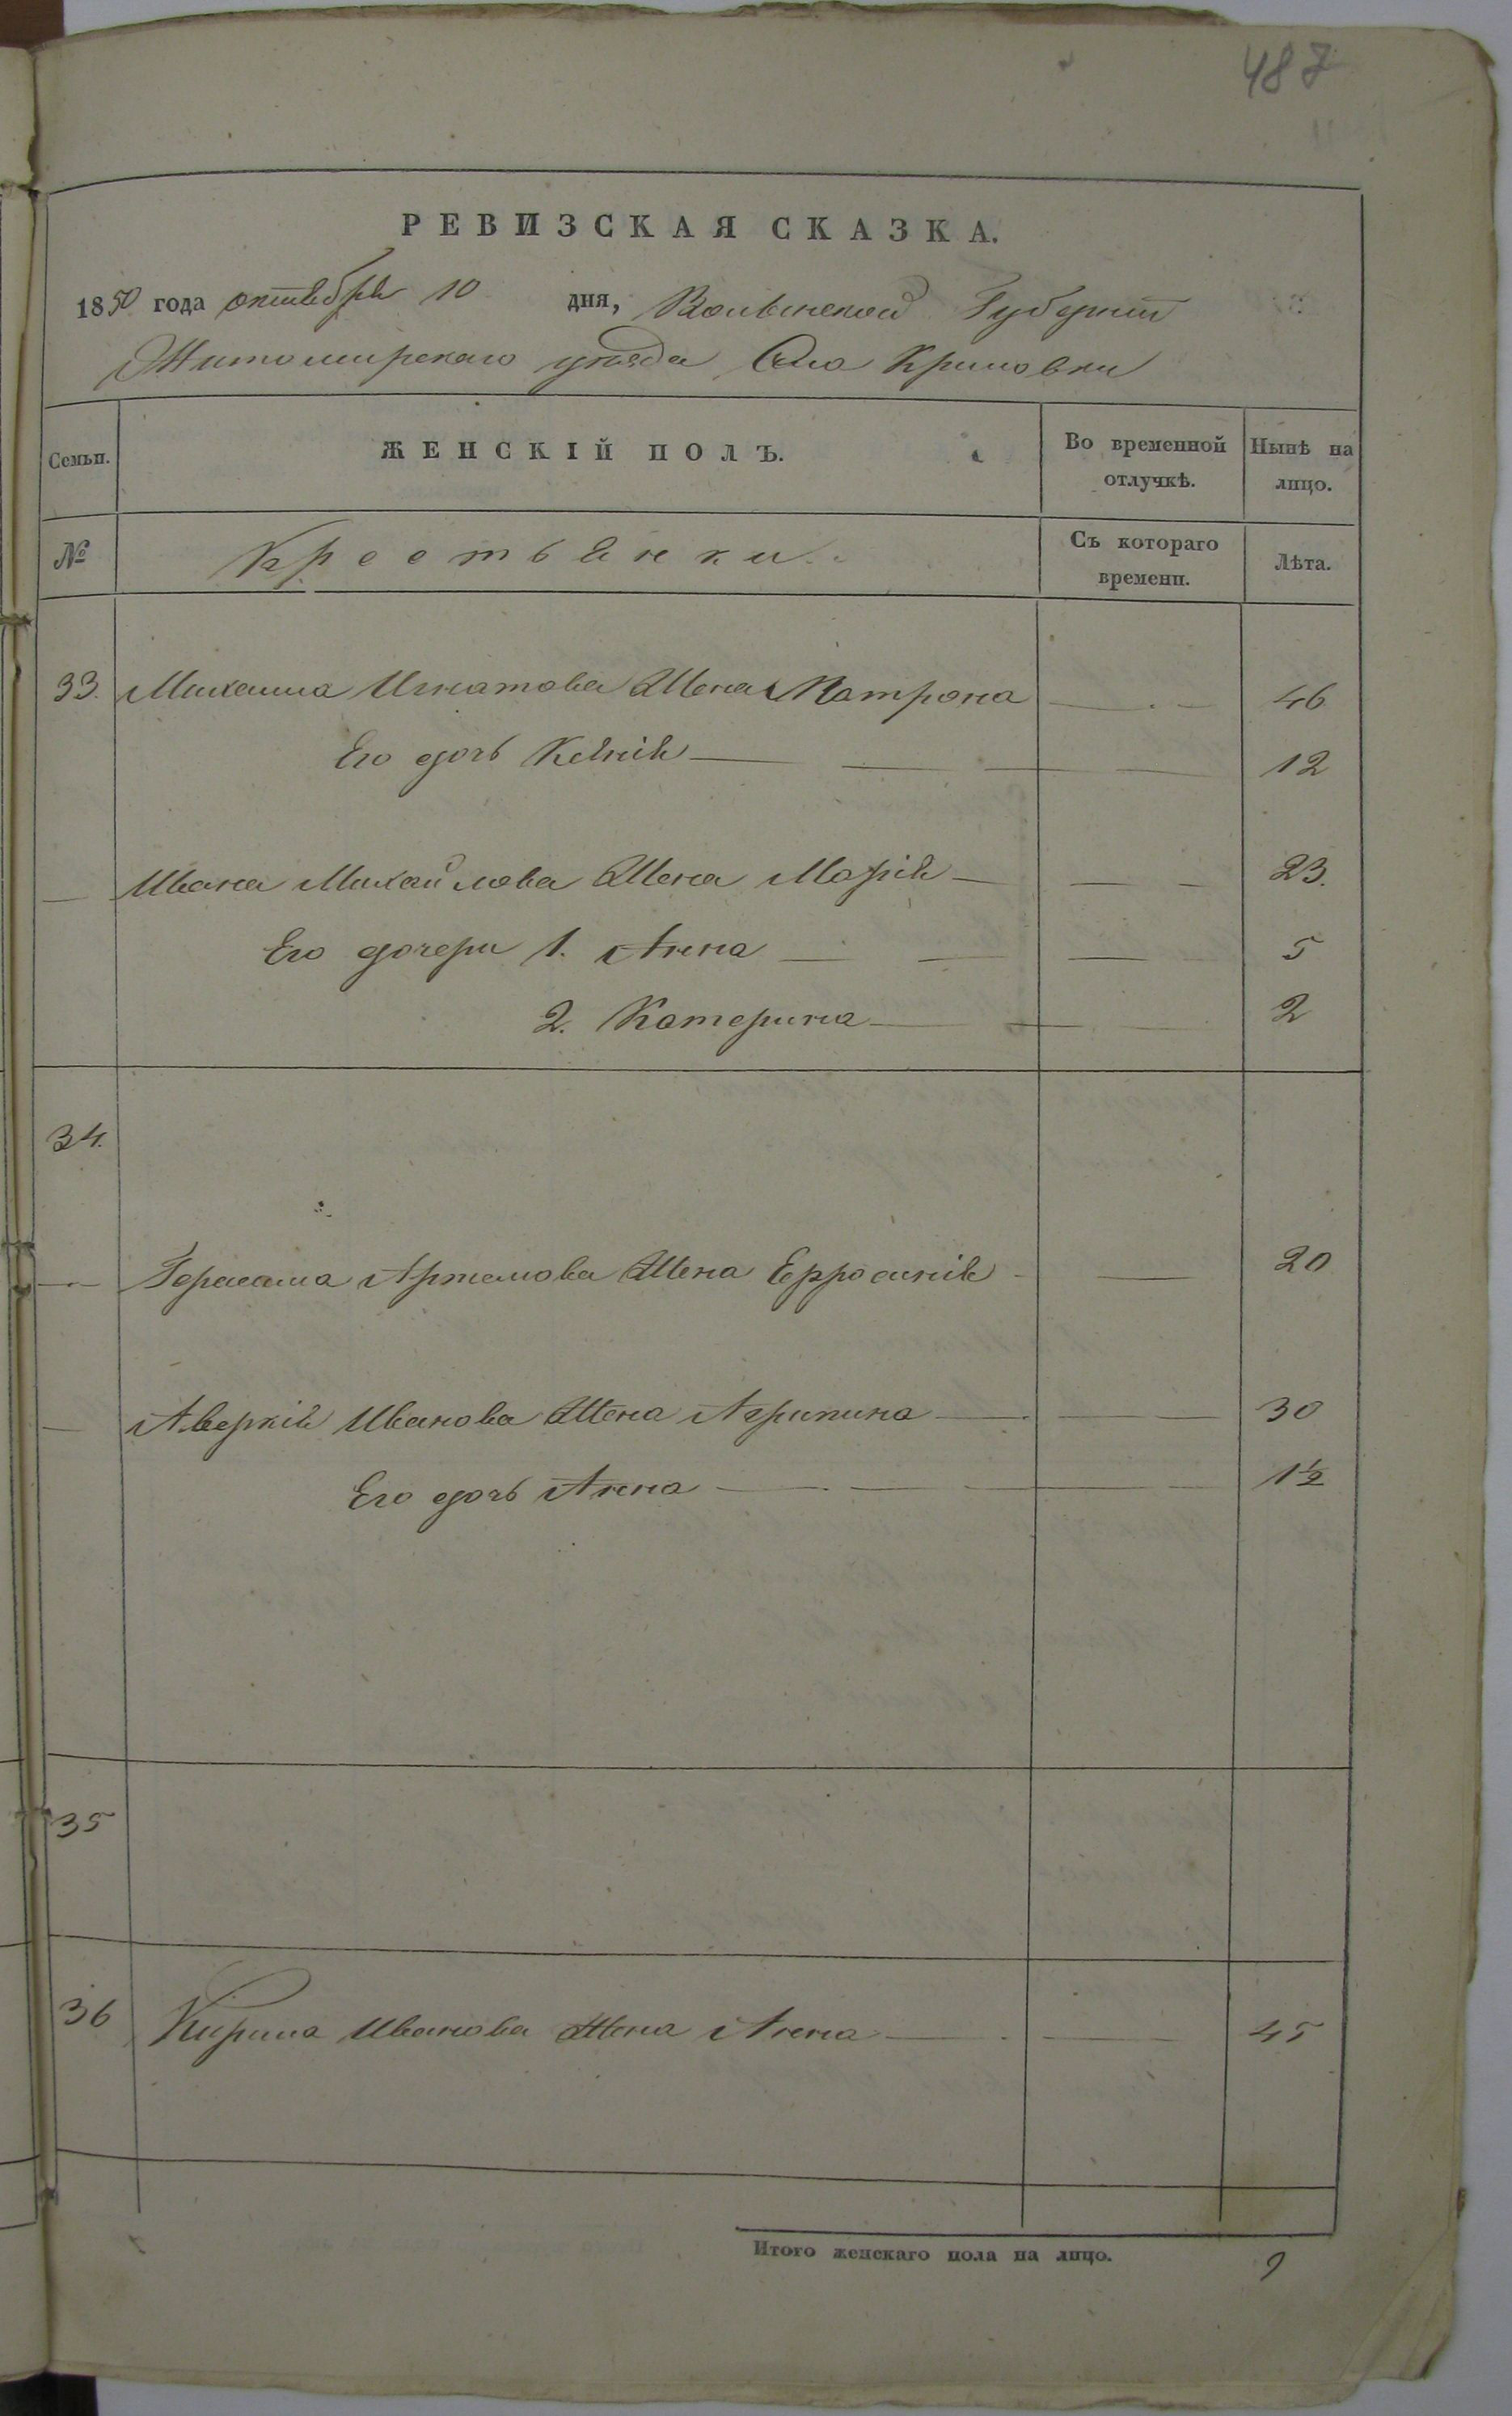 487
РЕВИЗСКАЯ СКАЗКА.
1850 года октября 10 дня, Волынской Губернiи
Житомирскаго уѣзда Села Кримовки
Семьи.
ЖЕНСКІЙ ПОЛЪ.
Во временной отлучкѣ.
Нынѣ на лицо.
№
Крестьянки.
Съ котораго времени.
Лѣта.
33. Михаила Игнатова Жена Матрона — 46
Его дочь Ксенія — 12
— Ивана Михайлова Жена Марія — 23.
Его дочери 1. Анна — 5
2. Катерина — 2
34.
— Герасима Артемова Жена Ефросинія — 20
— Аверкія Иванова Жена Агрипина — 30
Его дочь Анна — 1½
35
36 Кирила Иванова Жена Анна — 45
Итого женскаго пола на лицо. 9